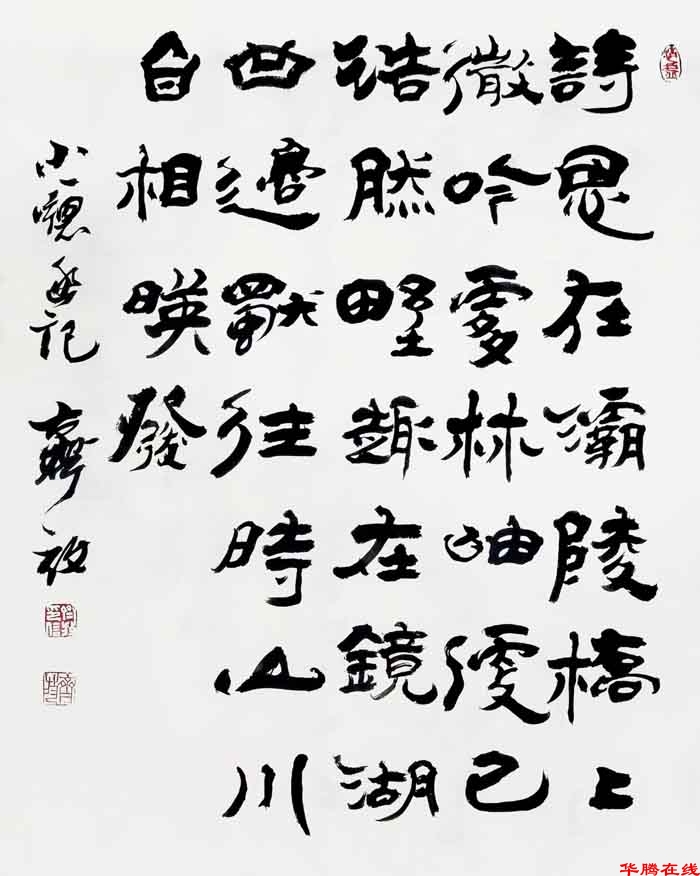 詩思在灞陵橋上
微吟處林岫便已
浩然野趣在鏡湖
曲邊獨往時山川
自相暎發
小窻幽記
华腾在线